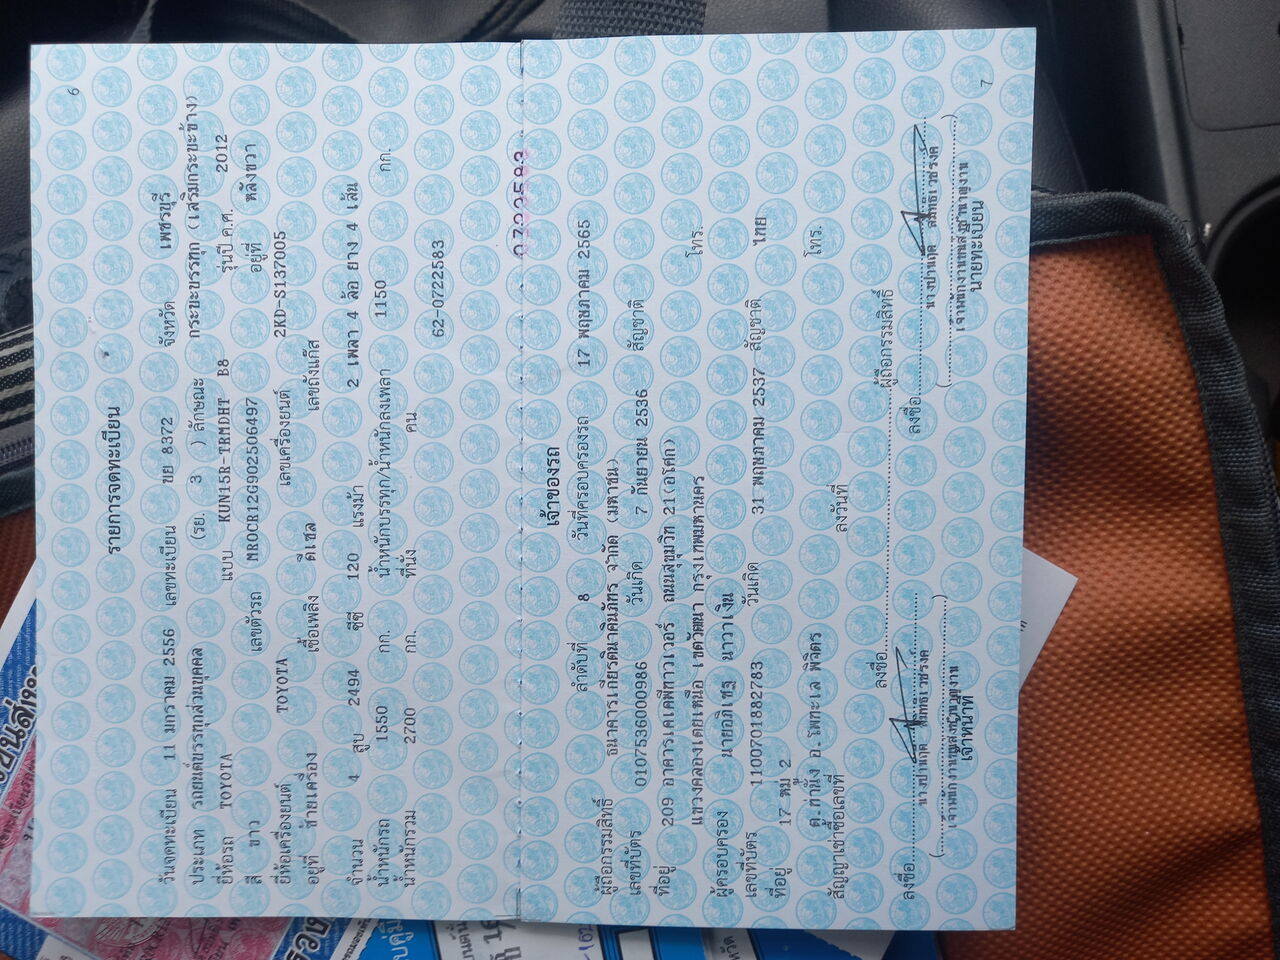 6
รายการจดทะเบียน
วันจดทะเบียน 11 มกราคม 2556 เลขทะเบียน ขย 8372 จังหวัด เพชรบุรี
ประเภท รถยนต์บรรทุกส่วนบุคคล (รย. 3 ) ลักษณะ กระบะบรรทุก (เสริมกระบะข้าง)
ยี่ห้อรถ TOYOTA แบบ KUN15R-TRMDHT B8 รุ่นปี ค.ศ. 2012
สี ขาว เลขตัวรถ MROCR12G902506497 อยู่ที่ หลังขวา
ยี่ห้อเครื่องยนต์ TOYOTA เลขเครื่องยนต์ 2KD-S137005
อยู่ที่ ซ้ายเครื่อง เชื้อเพลิง ดีเซล เลขถังแก๊ส
จำนวน 4 สูบ 2494 ซีซี 120 แรงม้า 2 เพลา 4 ล้อ ยาง 4 เส้น
น้ำหนักรถ 1550 กก. น้ำหนักบรรทุก/น้ำหนักลงเพลา 1150 กก.
น้ำหนักรวม 2700 กก. ที่นั่ง คน
62-0722583
0722583
เจ้าของรถ
ลำดับที่ 8 วันที่ครอบครองรถ 17 พฤษภาคม 2565
ผู้ถือกรรมสิทธิ์ ธนาคารเกียรตินาคินภัทร จำกัด (มหาชน)
เลขที่บัตร 0107536000986 วันเกิด 7 กันยายน 2536 สัญชาติ
ที่อยู่ 209 อาคารเคเคพีทาวเวอร์ ถนนสุขุมวิท 21(อโศก)
แขวงคลองเตยเหนือ เขตวัฒนา กรุงเทพมหานคร โทร.
ผู้ครอบครอง นายอภิเชฐ นาวาเงิน
เลขที่บัตร 1100701882783 วันเกิด 31 พฤษภาคม 2537 สัญชาติ ไทย
ที่อยู่ 17 หมู่ 2
ต.ท่านั่ง อ.โพทะเล พิจิตร โทร.
สัญญาเช่าซื้อเลขที่ ลงวันที่
ลงชื่อ ผู้ถือกรรมสิทธิ์
ลงชื่อ ลงชื่อ
เจ้าหน้าที่ นายทะเบียน
7